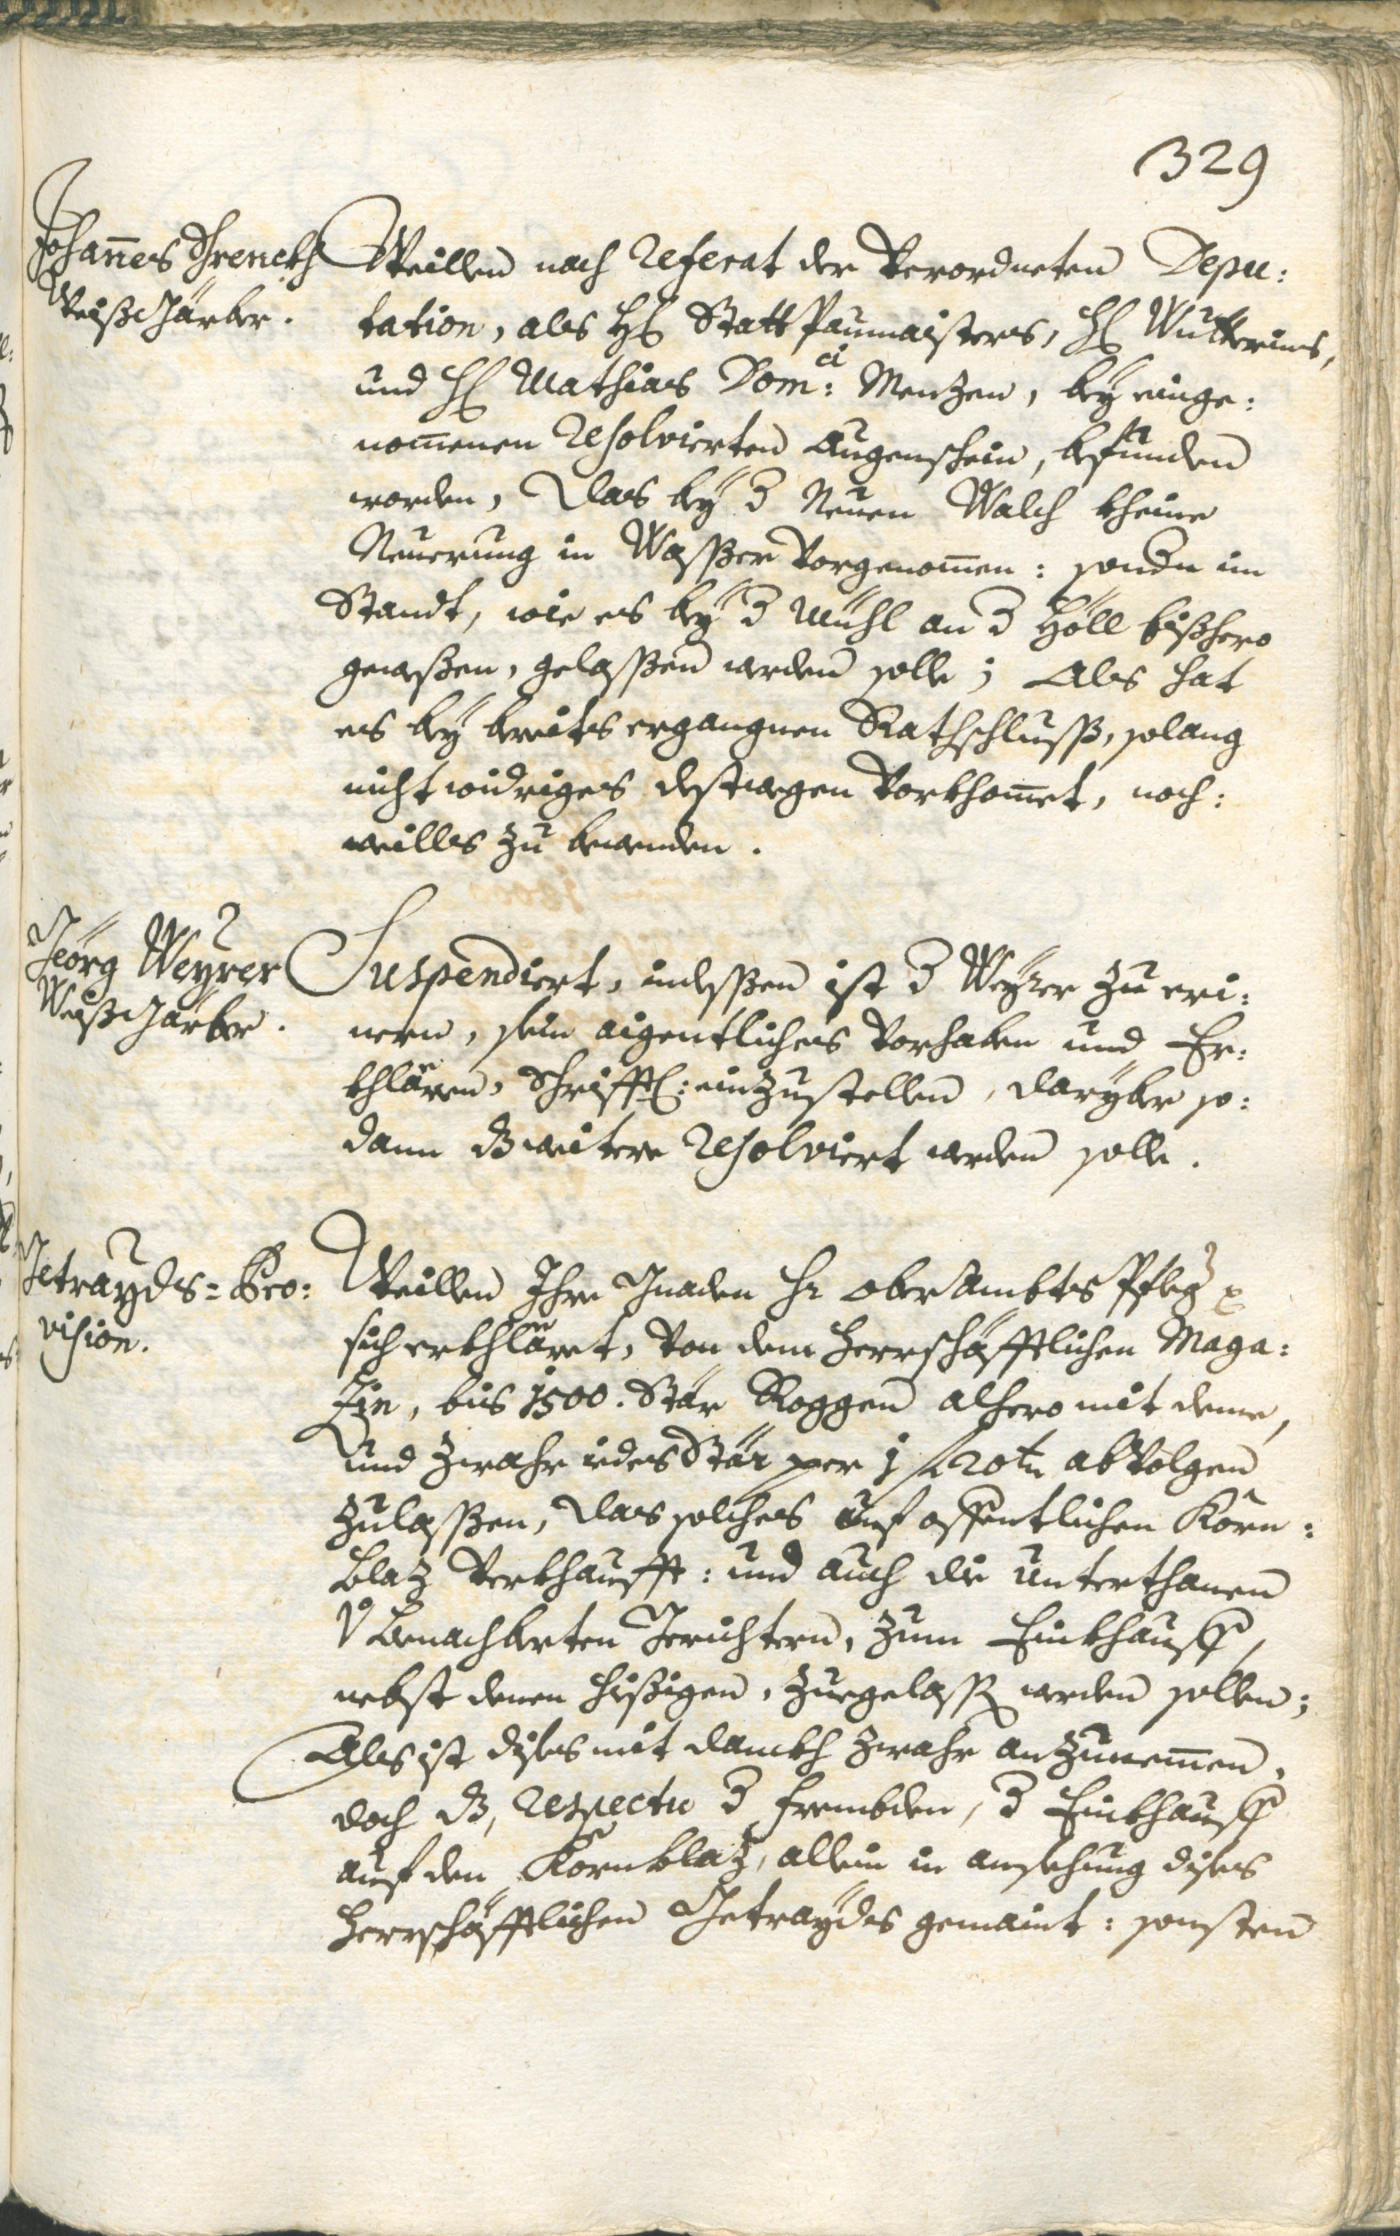 329
Johan̄es Schrenckh
Weißgärber.
Weillen nach Referat der Verordneten Depu:
tation, als H: Statt Paumaisters, H: Wutterins,
und H: Mathias Dom:ci Menzen, beÿ einge:
nom̄enen Resolvierten Augenschein, befunden
worden, Das beÿ d Neuen Walch kheine
Neuerung in Wasser Vorgenom̄en: sondn im
Standt, wie es beÿ d Mühl an d Höll bißhero
gewesen, gelassen werden solle; Als hat
es beÿ bereits ergangnen Rathschluß, solang
nicht widriges destwegen Vorkhom̄et, noch:
weills zu bewenden.
Jeörg Weyrer
Weißgärber.
Suspendiert, indessen ist d Weÿrer zu eri:
nern, sein aigentliches Vorhaben und Er:
khlären, Schrifftl: einzustellen, darÿber so:
dann dz weitere Resolviert werden solle.
Getrayds=Pro:
vision.
Weillen Ihre Gnaden Hr OberAmbts Pfleg
sich erkhläret, Von dem Herrschäfftlichen Maga:
zin, bis 1500. Stär Roggen alhero mit deme,
und zwahr iedes Stär per 1 f 20 tn abVolgen
zulassen, Das solches auf offentlichen Korn:
blaz Verkhaufft: und auch die Unterthanen
V benachberten Gerichtern, zum Einkhauff,
nebst denen hißigen, zuegelassen werden sollen;
Als ist dises mit danckh zwahr anzunem̄en,
doch dz, respectu d frembden, d Einkhauff
auf den Kornblaz, allein in ansehung dises
Herrschäfftlichen Getraÿds gemaint: sonsten